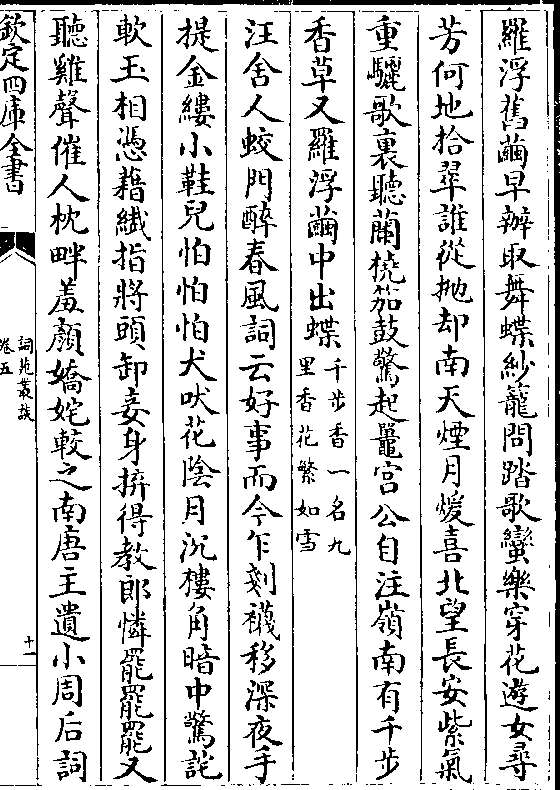 羅浮舊繭早辦取舞蝶紗籠問踏歌蠻樂穿花遊女尋
芳何地拾翠誰從抛却南天煙月煖喜北望長安紫氣
重驪歌裏聽蘭橈笳鼓驚起鼉宮公自注嶺南有千步
香草又羅浮繭中出蝶千步香一名九里香花繁如雪
汪舍人蛟門醉春風詞云好事而今乍剗襪移深夜手
提金縷小鞋兒怕怕怕犬吠花陰月沉樓角暗中驚詫
軟玉相憑藉纎指將頭卸妾身拚得教郎憐罷罷罷又
聽雞聲催人枕畔羞顔嬌姹較之南唐主遺小周后詞
欽定四庫全書
詞苑叢談
卷五
十一